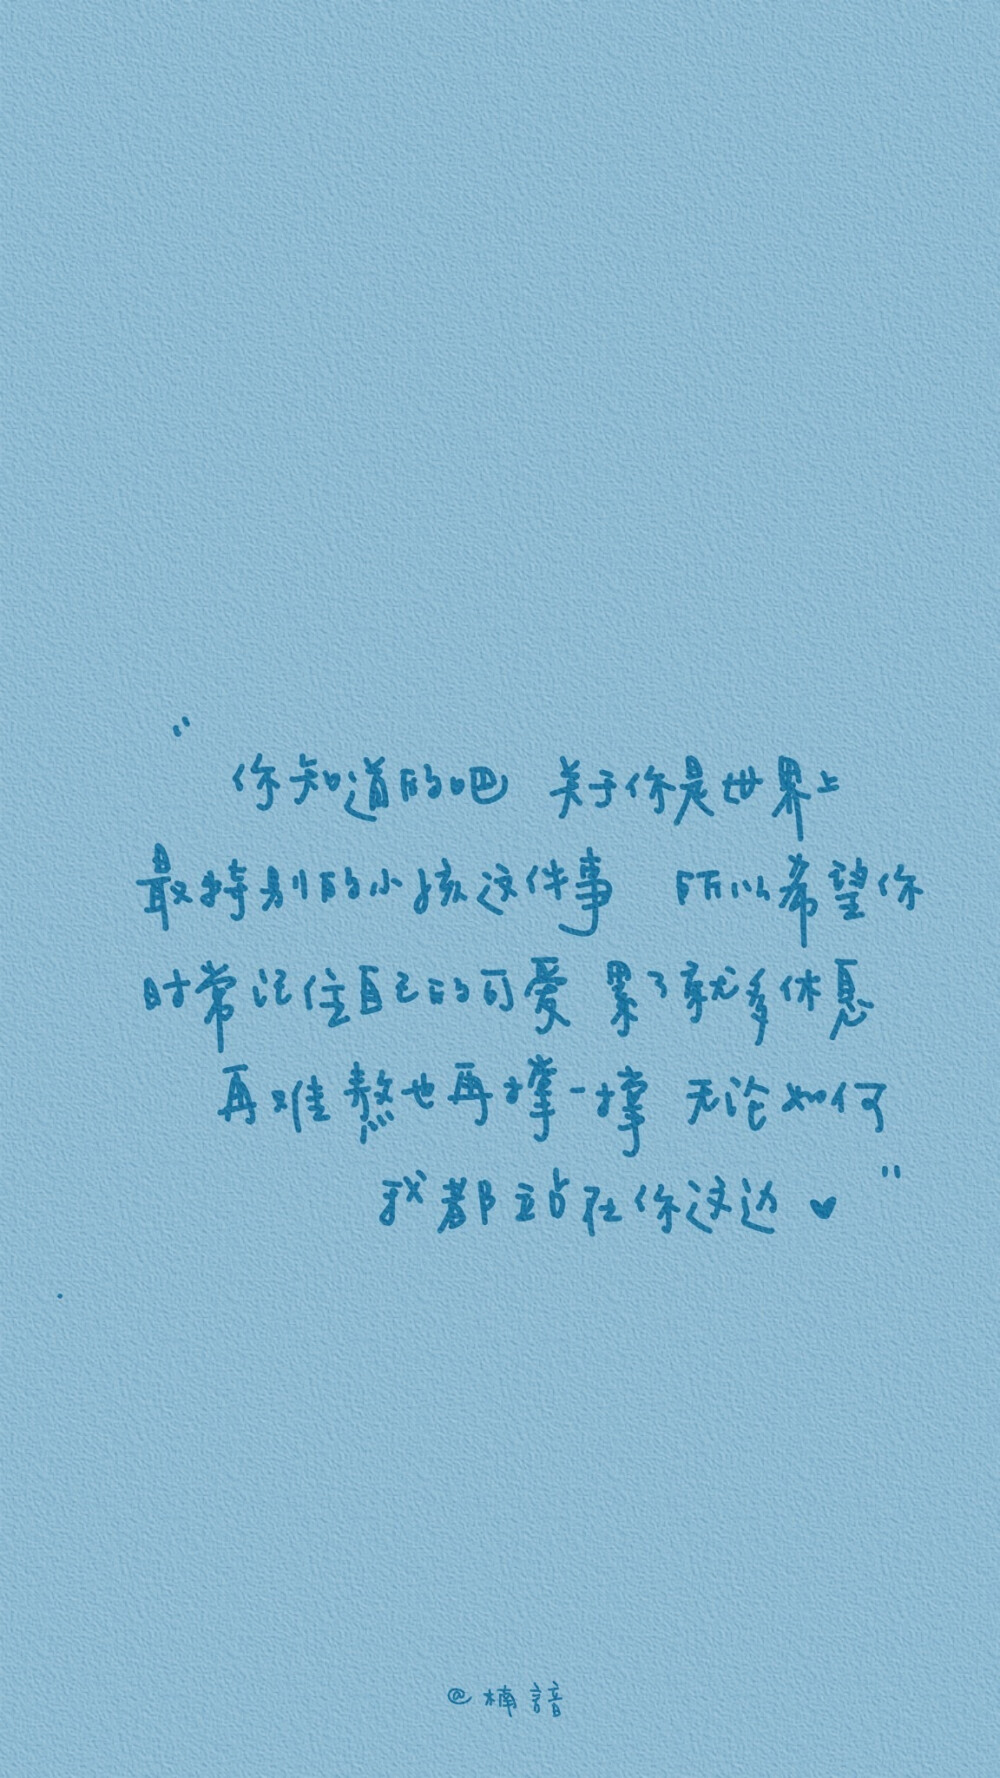 “ 你知道的吧 关于你是世界上
最特别的小孩这件事 所以希望你
时常记住自己的可爱 累了就多休息
再难熬也再撑一撑 无论如何
我都站在你这边 ♥ ”
@楠諳